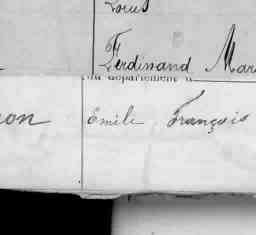 Louis
Ferdinand Mar
du département d
ron Emile François